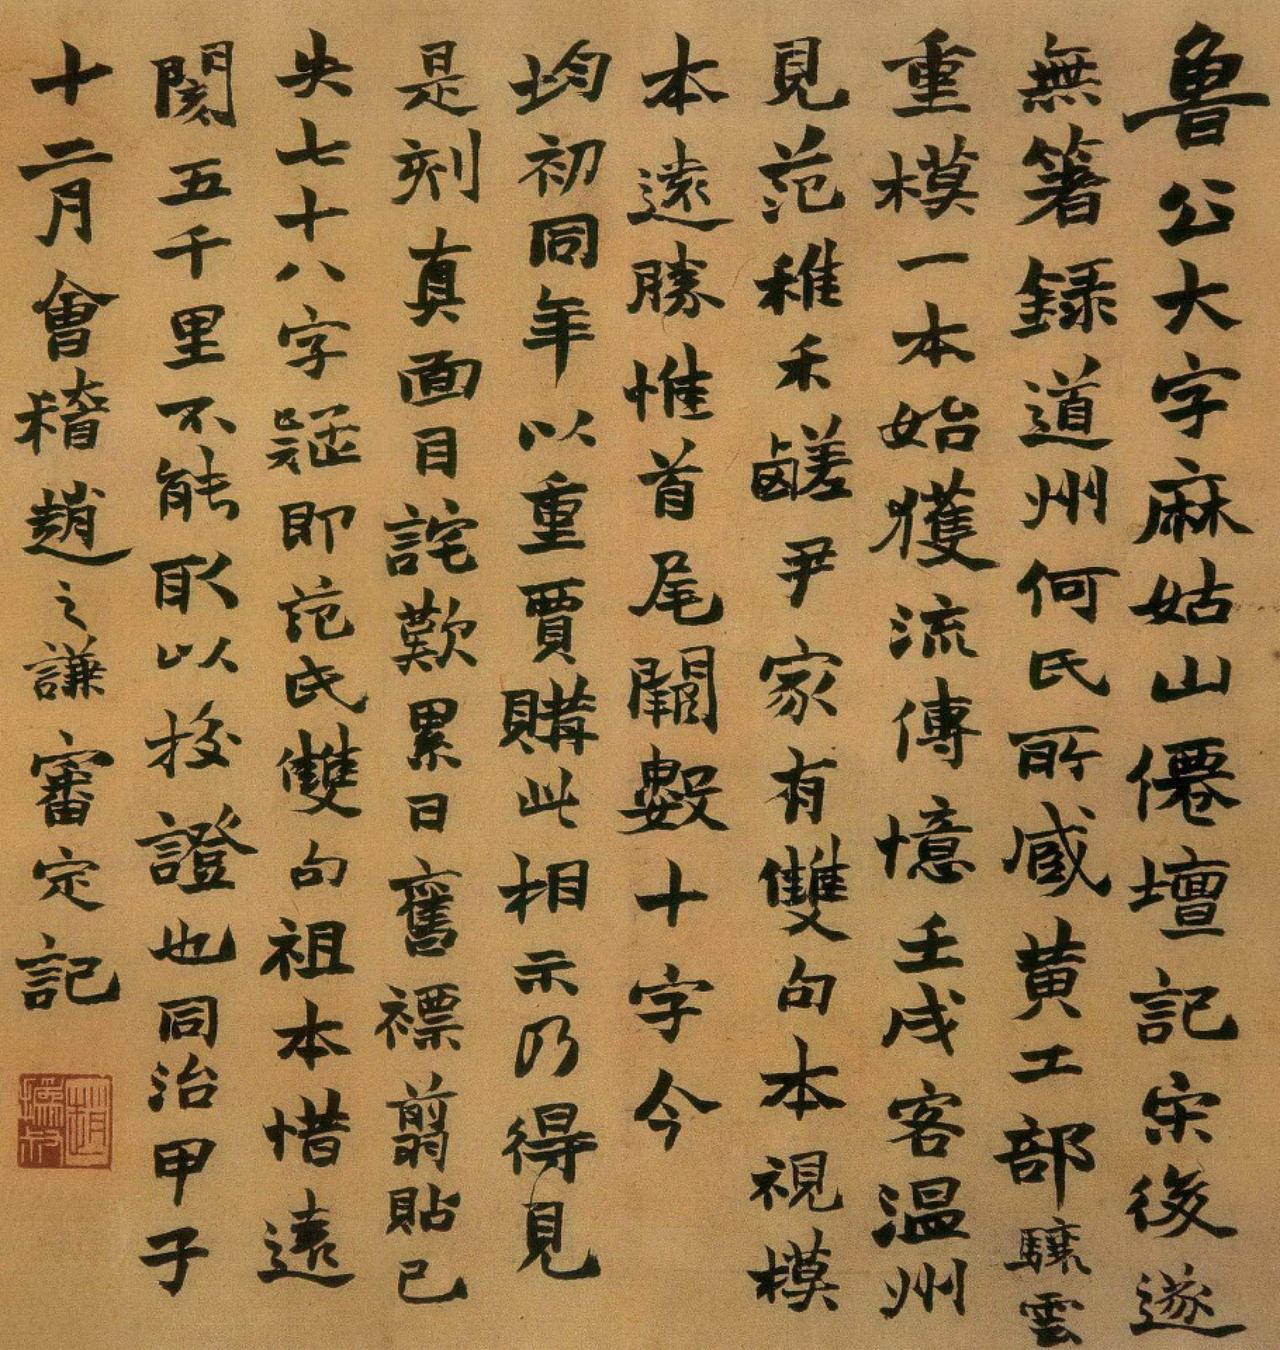 魯公大字麻姑山僊壇記宋後遂
無箸録道州何氏所臧黄工部驤雲
重橅一本始獲流傳憶壬戌客温州
見范稚禾鹾尹家有雙句本視橅
本遠勝惟首尾闕數十字今
均初同年以重賈購此相示乃得見
是刻真面目詫歎累日舊褾翦貼已
失七十八字疑即范氏雙句祖本惜遠
閡五千里不能取以挍證也同治甲子
十二月會稽趙之謙審定記
趙撝叔